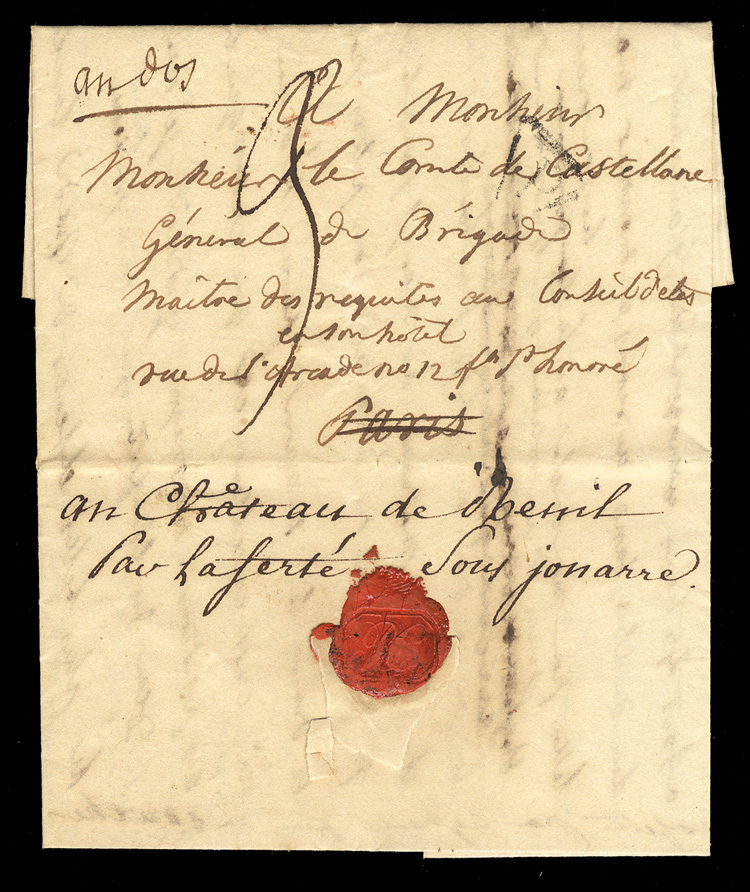 au dos
A Monsieur
Monsieur le Comte de Castellane
Général de Brigade
Maitre des requêtes au Conseil d'etat
en son hôtel
rue de l'arcade no 12 fg St honoré
Paris
au Château de Reuil
Par Laferté Sous jouarre